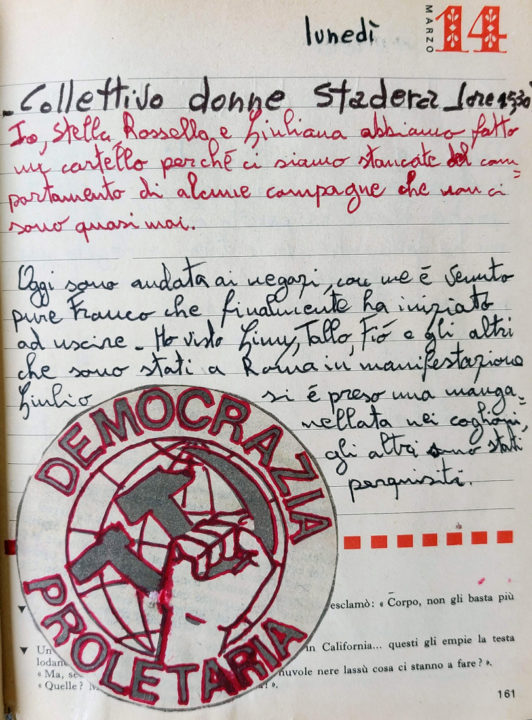 lunedì
MARZO
14
- Collettivo donne Stadera ore 15,30
Io, Stella, Rossella, e Giuliana abbiamo fatto
un cartello perché ci siamo stancate del com=
portamento di alcune compagne che non ci
sono quasi mai.
Oggi sono andata ai negozi, con me è venuto
pure Franco che finalmente ha iniziato
ad uscire - Ho visto Gimy, Tallo, Fió e gli altri
che sono stati a Roma in manifestazione
Giulio si é preso una manga=
nellata nei coglioni,
gli altri sono stati
perquisiti.
DEMOCRAZIA
PROLETARIA
esclamò: « Corpo, non gli basta più
▼ Un in California... questi gli empie la testa
lodan
« Ma, se nuvole nere lassù cosa ci stanno a fare? ».
« Quelle? M ?! ».
161